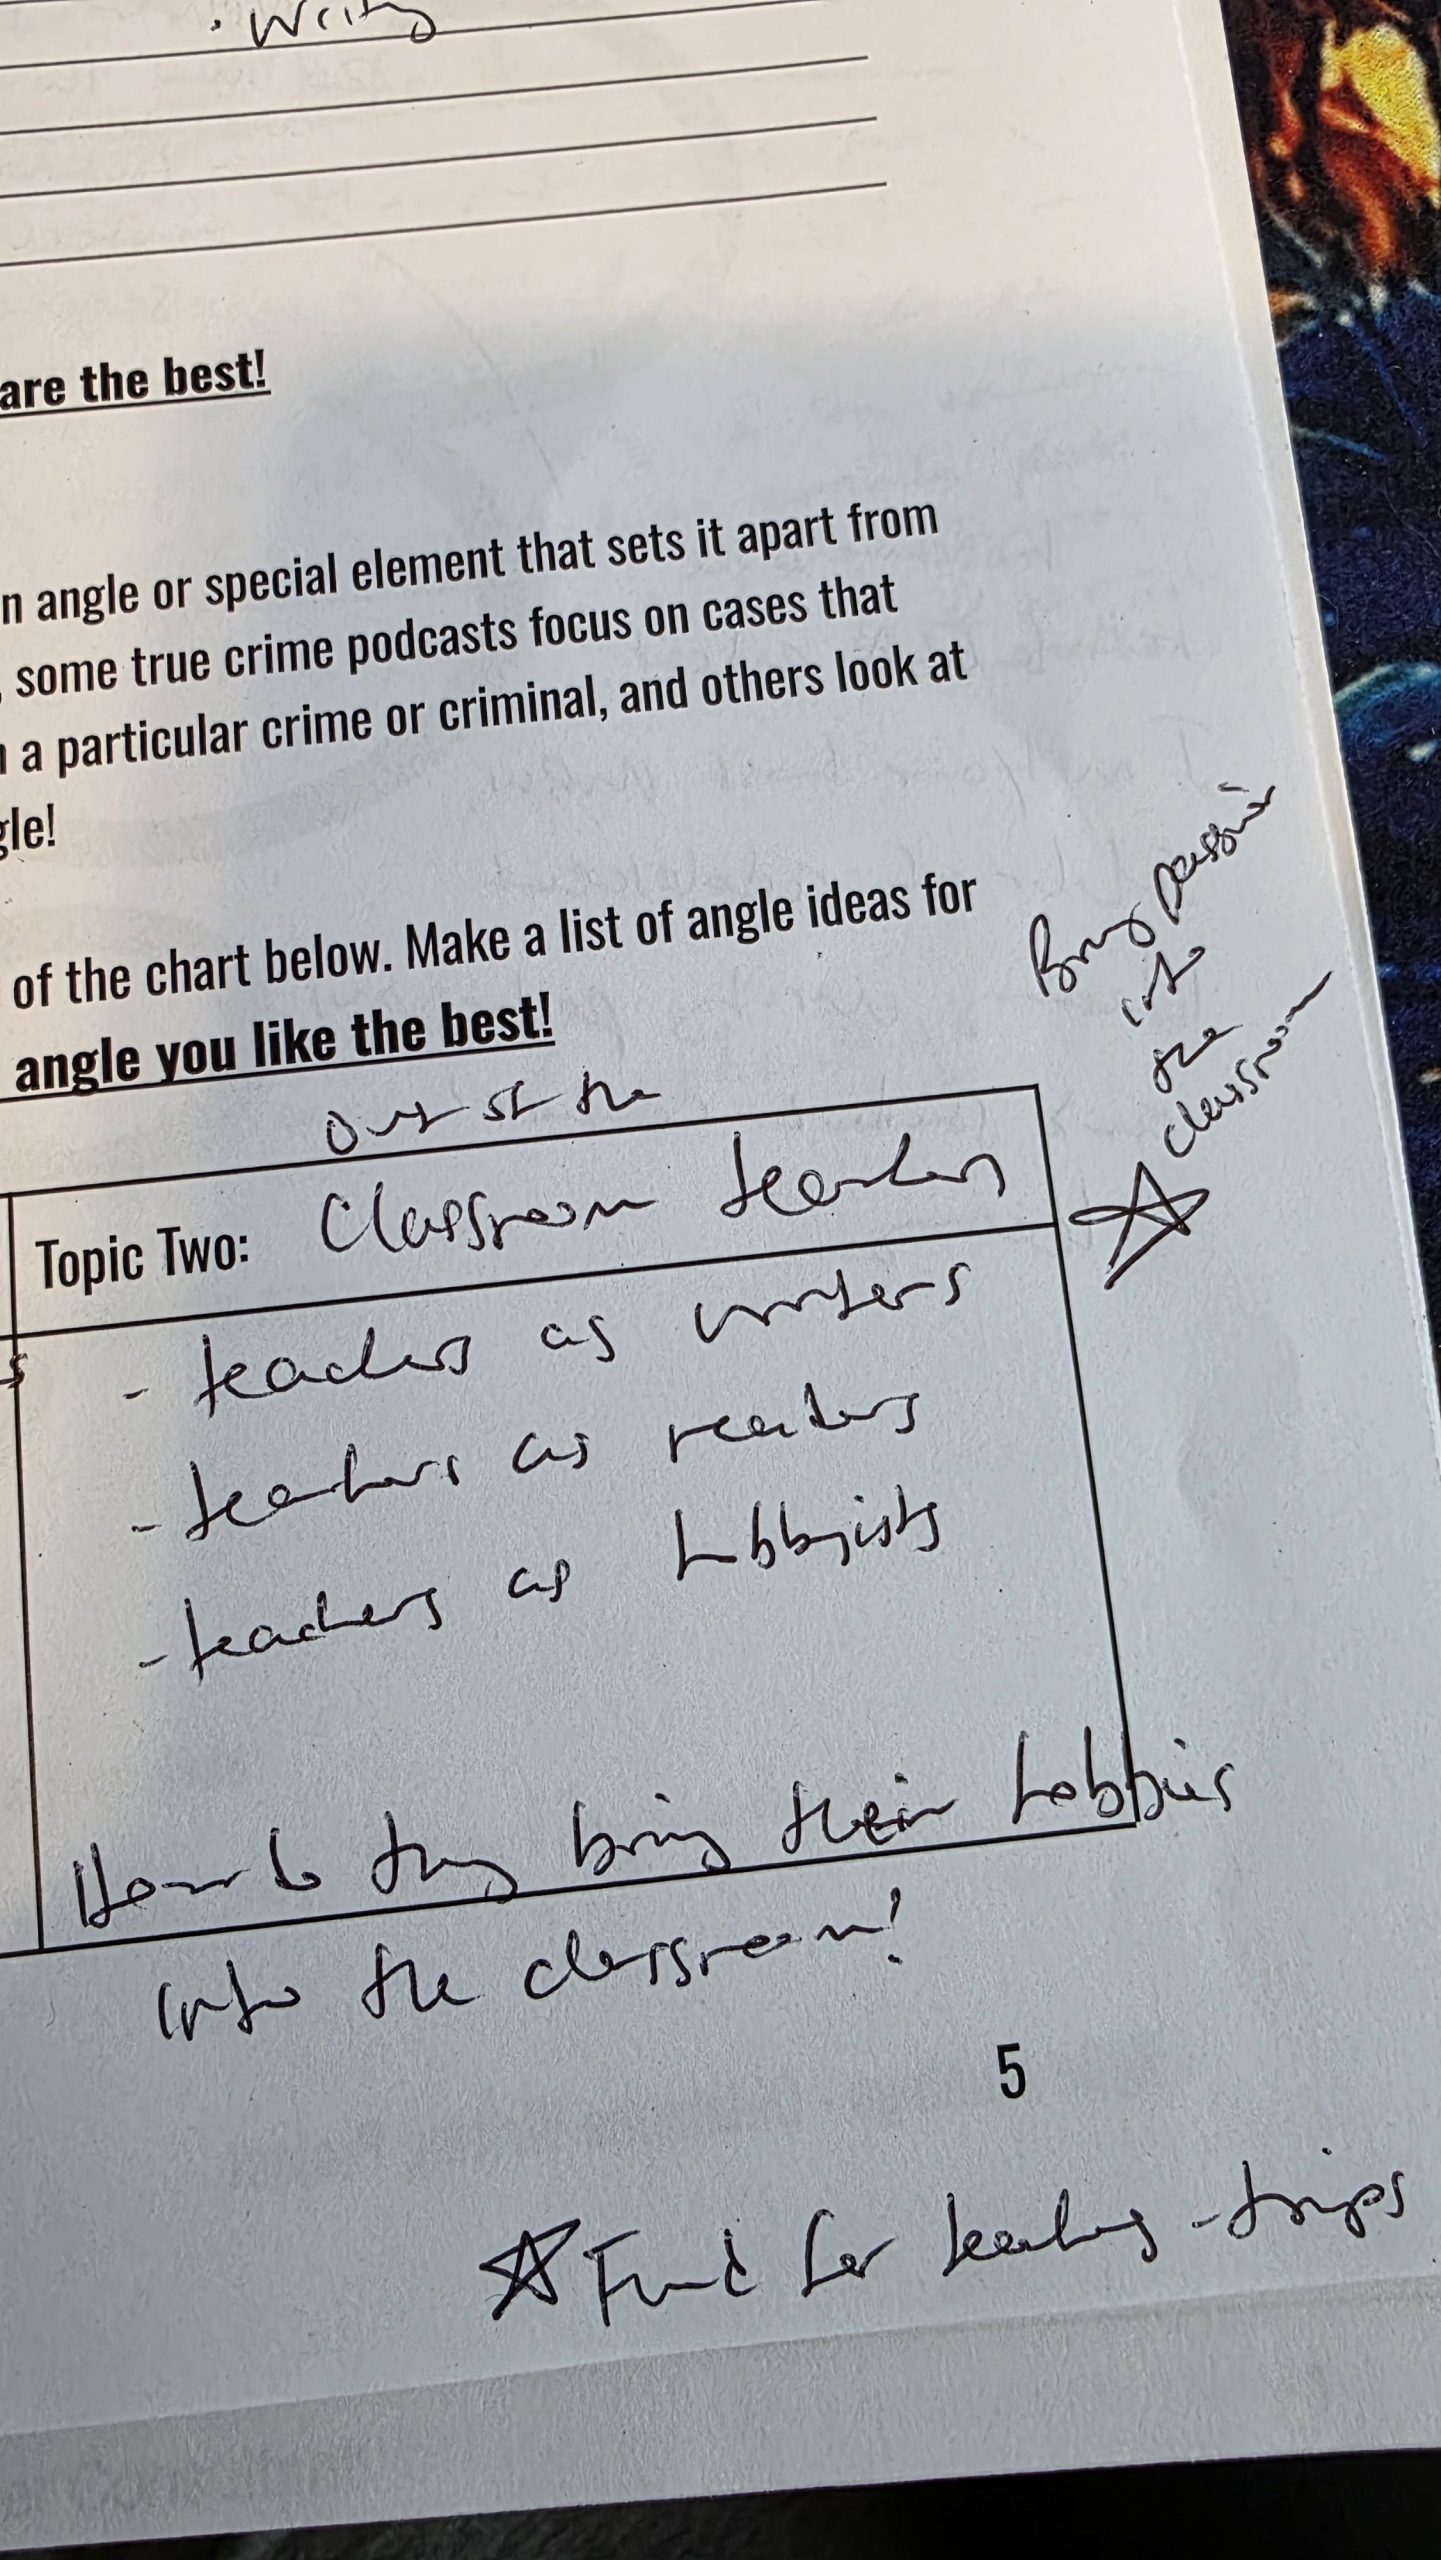 · Writing
are the best!
n angle or special element that sets it apart from
, some true crime podcasts focus on cases that
a particular crime or criminal, and others look at
gle!
of the chart below. Make a list of angle ideas for
angle you like the best!
Bring passion
into
the
classroom
out of the
Topic Two: Classroom teachers
- teachers as writers
- teachers as readers
- teachers as hobbyists
How do they bring their hobbies
into the classroom!
5
Fund for teachers - trips